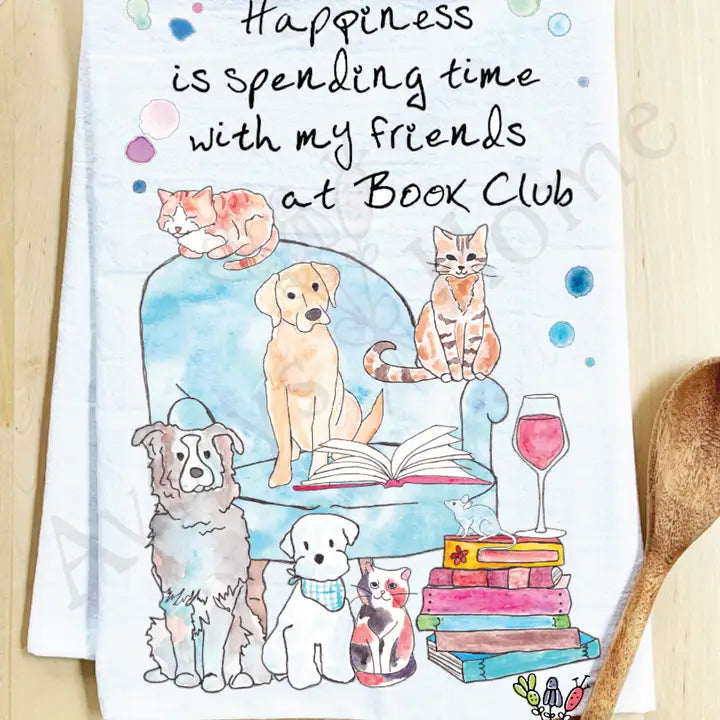 Happiness
is spending time
with my friends
at Book Club